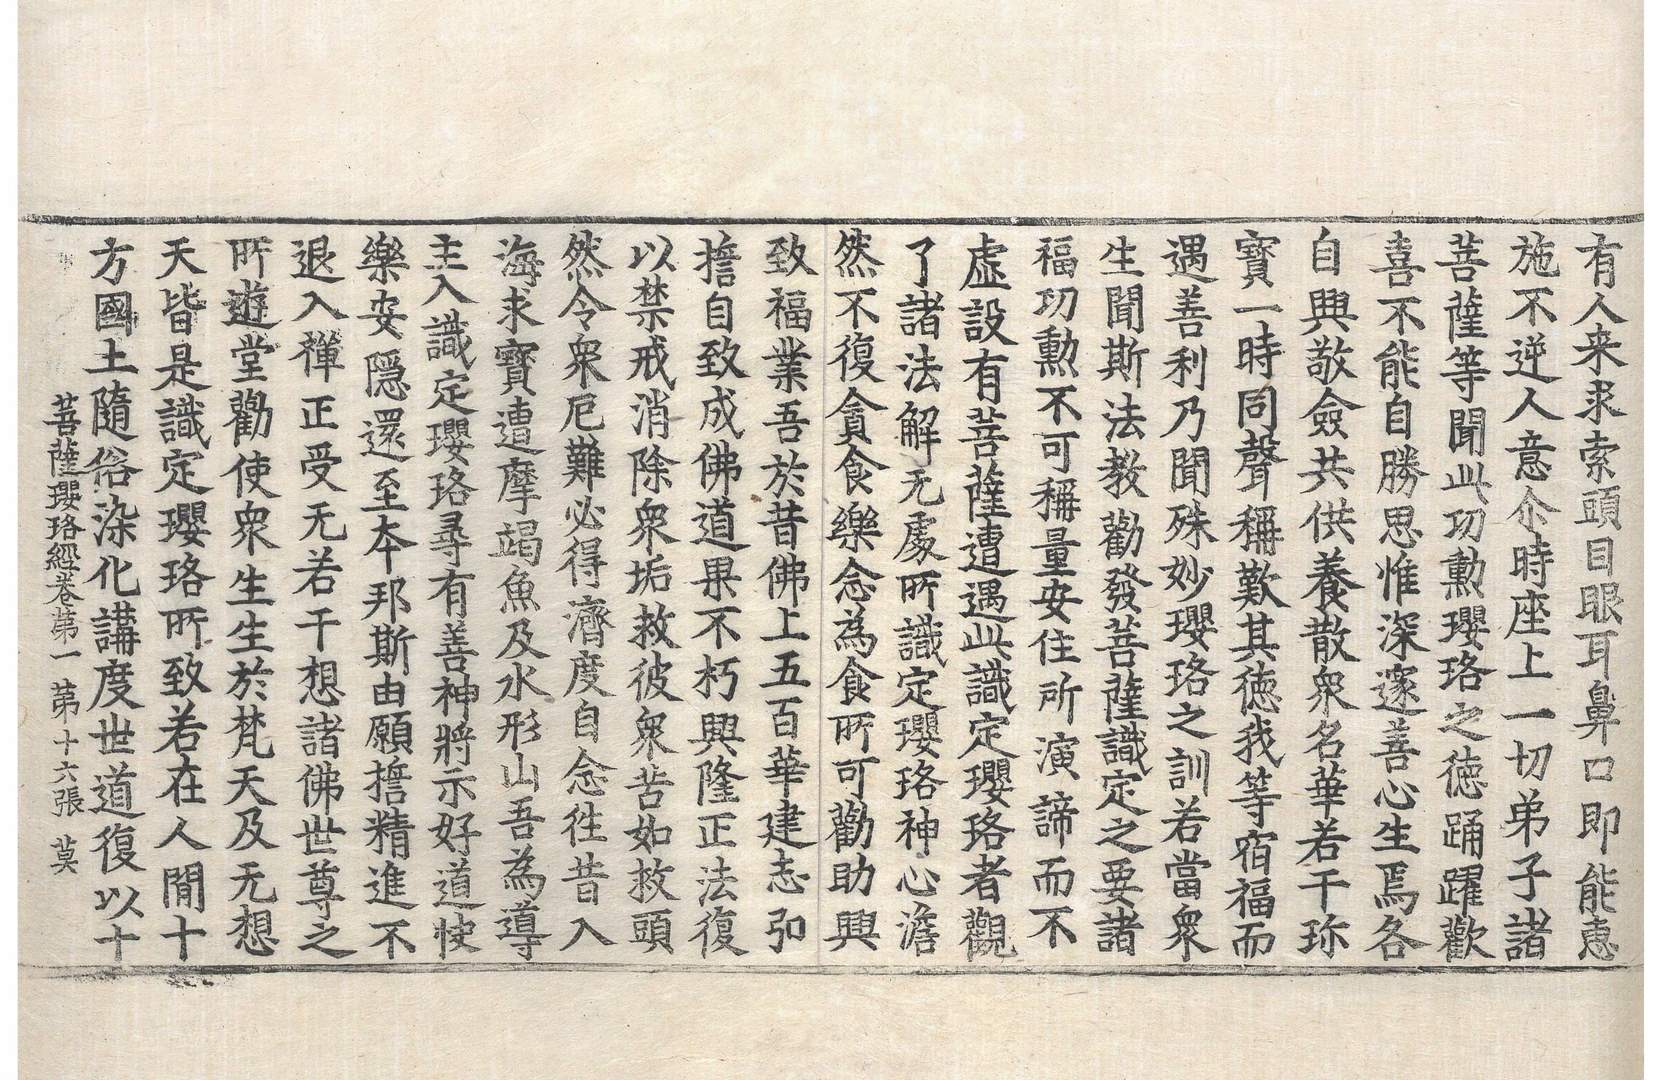 有人来求索頭目眼耳鼻口即能恵
施不逆人意尒時座上一切弟子諸
菩薩等聞此功勲瓔珞之徳踊躍歡
喜不能自勝思惟深邃善心生焉各
自興敬僉共供養散衆名華若干珎
寶一時同聲稱歎其徳我等宿福而
遇善利乃聞殊妙瓔珞之訓若當衆
生聞斯法教勸發菩薩識定之要諸
福功勲不可稱量安住所演諦而不
虚設有菩薩遭遇此識定瓔珞者觀
了諸法解无處所識定瓔珞神心澹
然不復貪食樂念為食所可勸助興
致福業吾於昔佛上五百華建志弘
擔自致成佛道果不朽興隆正法復
以禁戒消除衆垢救彼衆苦如救頭
然令衆厄難必得濟度自念往昔入
海求寳遭摩竭魚及水形山吾為導
主入識定瓔珞尋有善神將示好道快
樂安隱還至本邦斯由願擔精進不
退入禪正受无若干想諸佛世尊之
所遊堂勸使衆生生於梵天及无想
天皆是識定瓔珞所致若在人間十
方國土隨俗染化講度世道復以十
菩薩瓔珞經卷苐一 苐十六張 莫